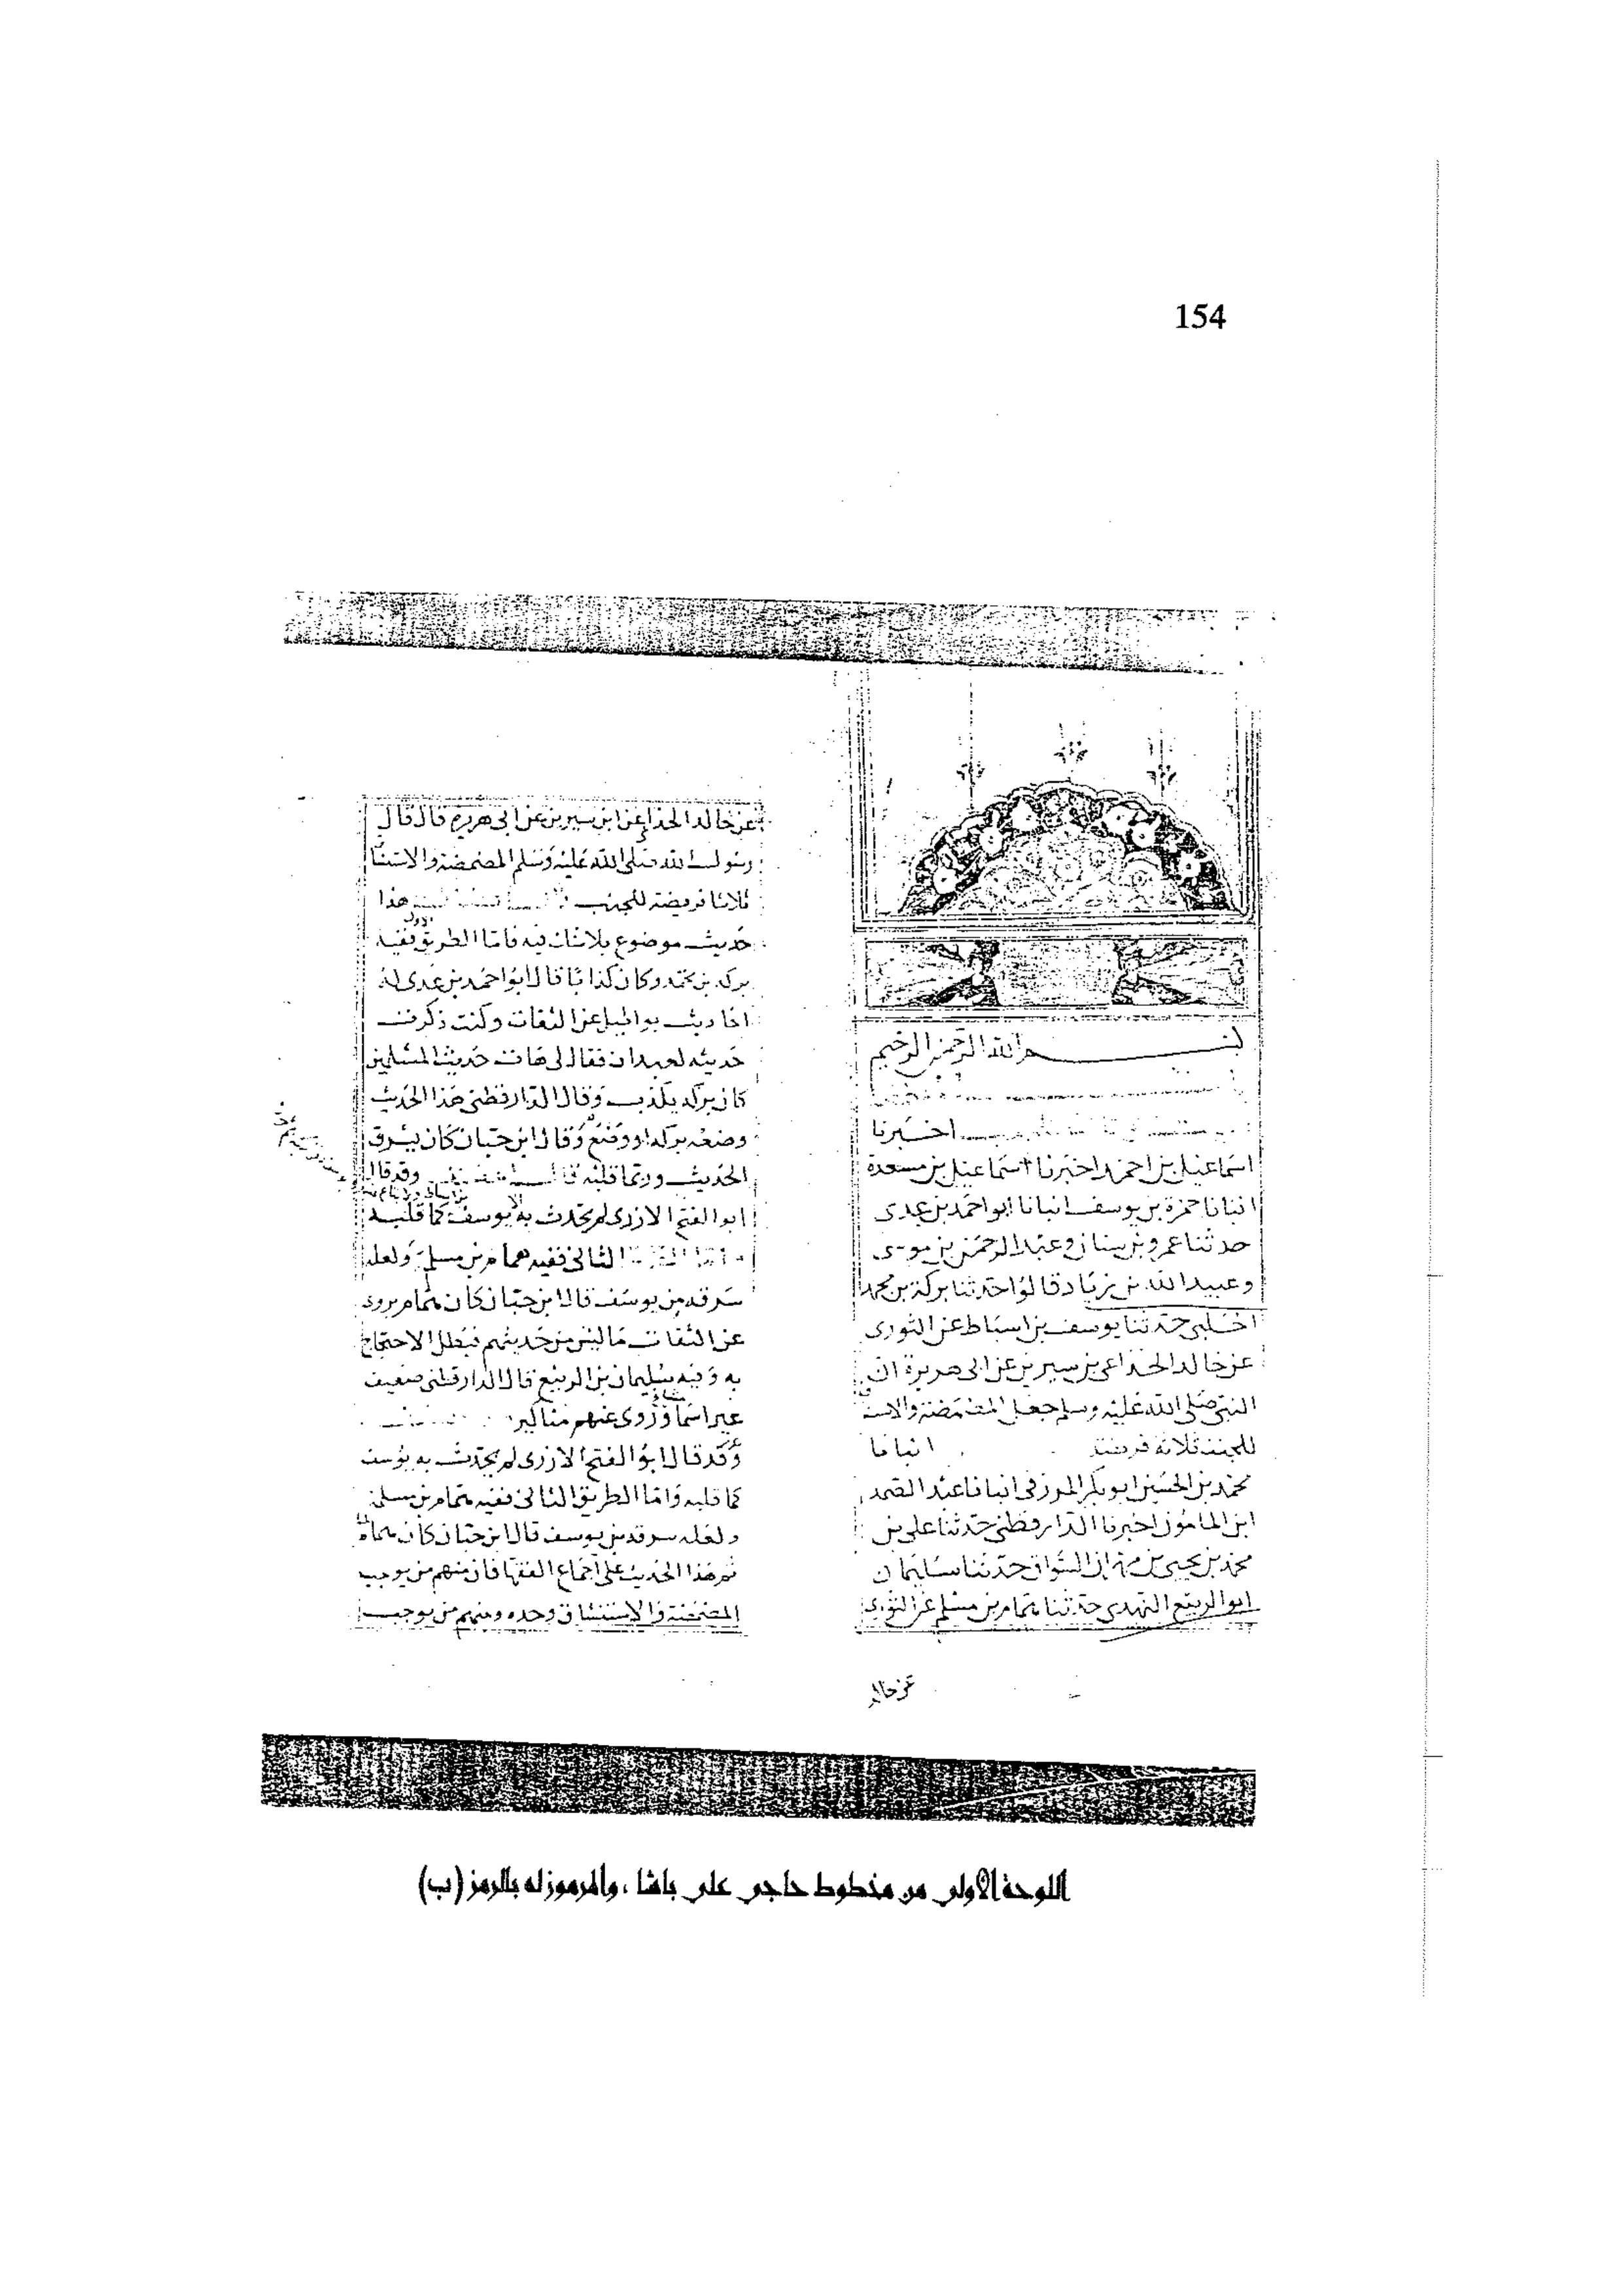 154
بسم الله الرحمن الرحيم
اخبرنا
اسماعيل بن احمد اخبرنا اسماعيل بن مسعدة
انبانا حمزة بن يوسف انبانا ابو احمد بن عدى
حدثنا عمرو بن سنان وعبد الرحمن بن موسى
وعبيد الله بن زياد قالوا حدثنا بركة بن محمد
الحلبى حدثنا يوسف بن اسباط عن الثورى
عن خالد الحذا عن بن سيرين عن ابى هريرة ان
النبى صلى الله عليه وسلم جعل المضمضة والاستنشاق
للجنب ثلاثة فريضة انبانا
محمد بن الحسين ابو بكر المرزفى انبانا عبد الصمد
ابن المامون اخبرنا الدارقطنى حدثنا على بن
محمد بن يحيى بن مهران السواق حدثنا سليمان
ابو الربيع النهدى حدثنا همام بن مسلم عن الثورى
عن خالد
عن خالد الحذا عن ابن سيرين عن ابى هريره قال قال
رسول الله صلى الله عليه وسلم المضمضة والاستنشا
ثلاثا فريضة للجنب هذا
حديث موضوع بلا شك فيه فاما الطريق الاول ففيه
بركه بن محمد وكان كذابا قال ابو احمد بن عدى له
احاديث بواطيل عن الثقات وكنت ذكرت
حديثه لعبدان فقال لى هات حديث المسلمين
كان بركه يكذب وقال الدارقطنى هذا الحديث
وضعه بركه او وضع وقال ابن حبان كان يسرق
الحديث وربما قلبه وقد قال
ابو الفتح الازدى لم يحدث به الا يوسف كما قلبه
الثانى ففيه همام بن مسلم ولعله
سرقه من يوسف قال ابن حبان كان همام يروى
عن الثقات ما ليس من حديثهم فبطل الاحتجاج
به وفيه سليمان بن الربيع قال الدارقطنى ضعيف
غير اسما وروى عنهم مناكير
وقد قال ابو الفتح الازدى لم يحدث به يوسف
كما قلبه واما الطريق الثانى ففيه همام بن مسلم
ولعله سرقه من يوسف قال ابن حبان كان همام
ثم هذا الحديث على اجماع الفقها فان منهم من يوجب
المضمضة والاستنشاق وحده ومنهم من يوجب
اللوحة الأولى من مخطوط حاجي علي باشا ، والمرموز له بالرمز (ب)